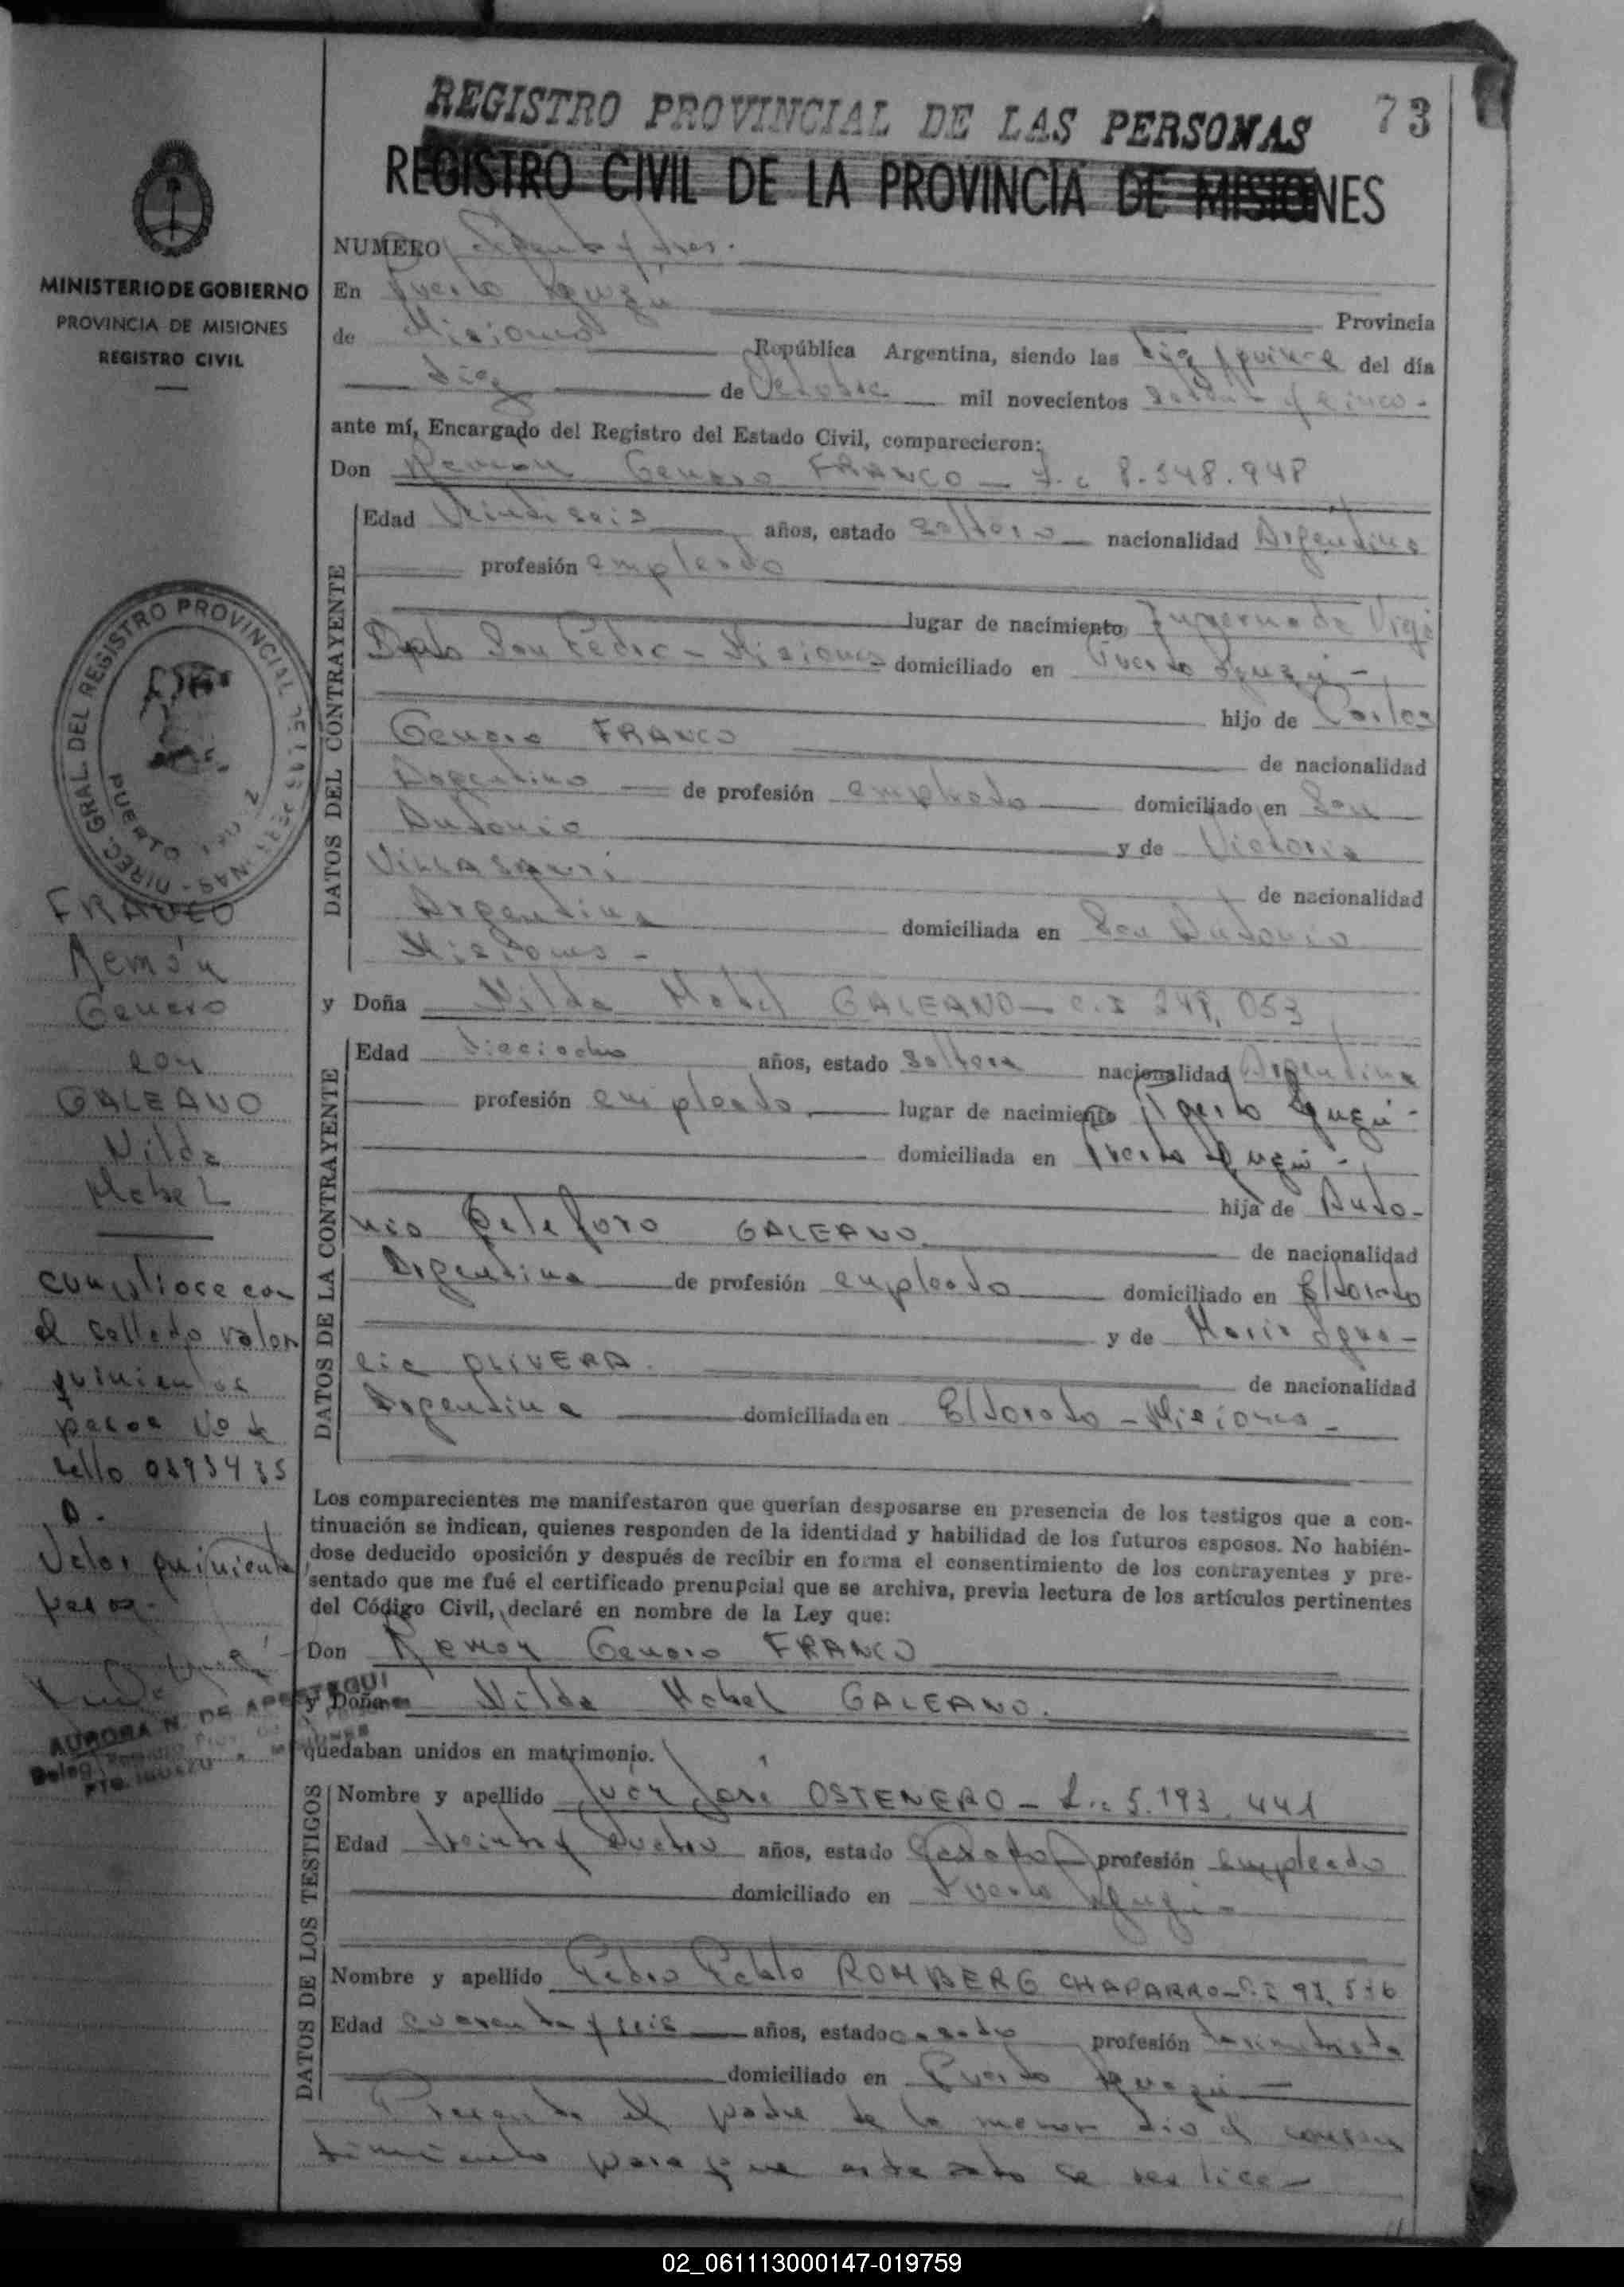 REGISTRO PROVINCIAL DE LAS PERSONAS 73
REGISTRO CIVIL DE LA PROVINCIA DE MISIONES
MINISTERIO DE GOBIERNO
PROVINCIA DE MISIONES
REGISTRO CIVIL
NUMERO Setenta y tres.
En Puerto Iguazú Provincia
de Misiones República Argentina, siendo las diez y quince del día
diez de Octubre mil novecientos setenta y cinco.
ante mí, Encargado del Registro del Estado Civil, comparecieron:
Don Ramón Genaro FRANCO 8.548.948
DATOS DEL CONTRAYENTE
Edad Veintiseis años, estado soltero nacionalidad Argentina
profesión empleado
lugar de nacimiento
Dpto San Pedro - Misiones domiciliado en Puerto Iguazú -
hijo de Carlos
Genaro FRANCO de nacionalidad
Argentino de profesión empleado domiciliado en San
Antonio y de Victoria
de nacionalidad
Argentina domiciliada en San Antonio
Misiones -
y Doña Nilda Mabel GALEANO - C.I 248.053
DATOS DE LA CONTRAYENTE
Edad dieciocho años, estado soltera nacionalidad Argentina
profesión empleada lugar de nacimiento Puerto Iguazú -
domiciliada en Puerto Iguazú -
hija de Anto-
nio Teleforo GALEANO de nacionalidad
Argentina de profesión empleado domiciliado en Eldorado
y de María Igna-
cia OLIVERA. de nacionalidad
Argentina domiciliada en Eldorado - Misiones -
Los comparecientes me manifestaron que querían desposarse en presencia de los testigos que a con-
tinuación se indican, quienes responden de la identidad y habilidad de los futuros esposos. No habién-
dose deducido oposición y después de recibir en forma el consentimiento de los contrayentes y pre-
sentado que me fué el certificado prenupcial que se archiva, previa lectura de los artículos pertinentes
del Código Civil, declaré en nombre de la Ley que:
Don Ramón Genaro FRANCO
y Doña Nilda Mabel GALEANO.
quedaban unidos en matrimonio.
DATOS DE LOS TESTIGOS
Nombre y apellido Juan José OSTENERO - 5.193.441
Edad treinta y ocho años, estado casado profesión empleado
domiciliado en Puerto Iguazú -
Nombre y apellido Pedro Pablo ROMBERG CHAPARRO - C.I 98.536
Edad cuarenta y seis años, estado casado profesión taximetrista
domiciliado en Puerto Iguazú -
Presente el padre de la menor dio el consen
timiento para que este acto se realice -
DIREC. GRAL. DEL REGISTRO PROVINCIAL DE LAS PERSONAS
PUERTO IGUAZU
FRANCO
Ramón
Genaro
con
GALEANO
Nilda
Mabel
cumpliose con
el sellado valor
quinientos
pesos
sello 0893435
D.
Valor quinientos
pesos.
AURORA N. DE APESTEGUI
PTO. IGUAZU - MISIONES
02_061113000147-019759